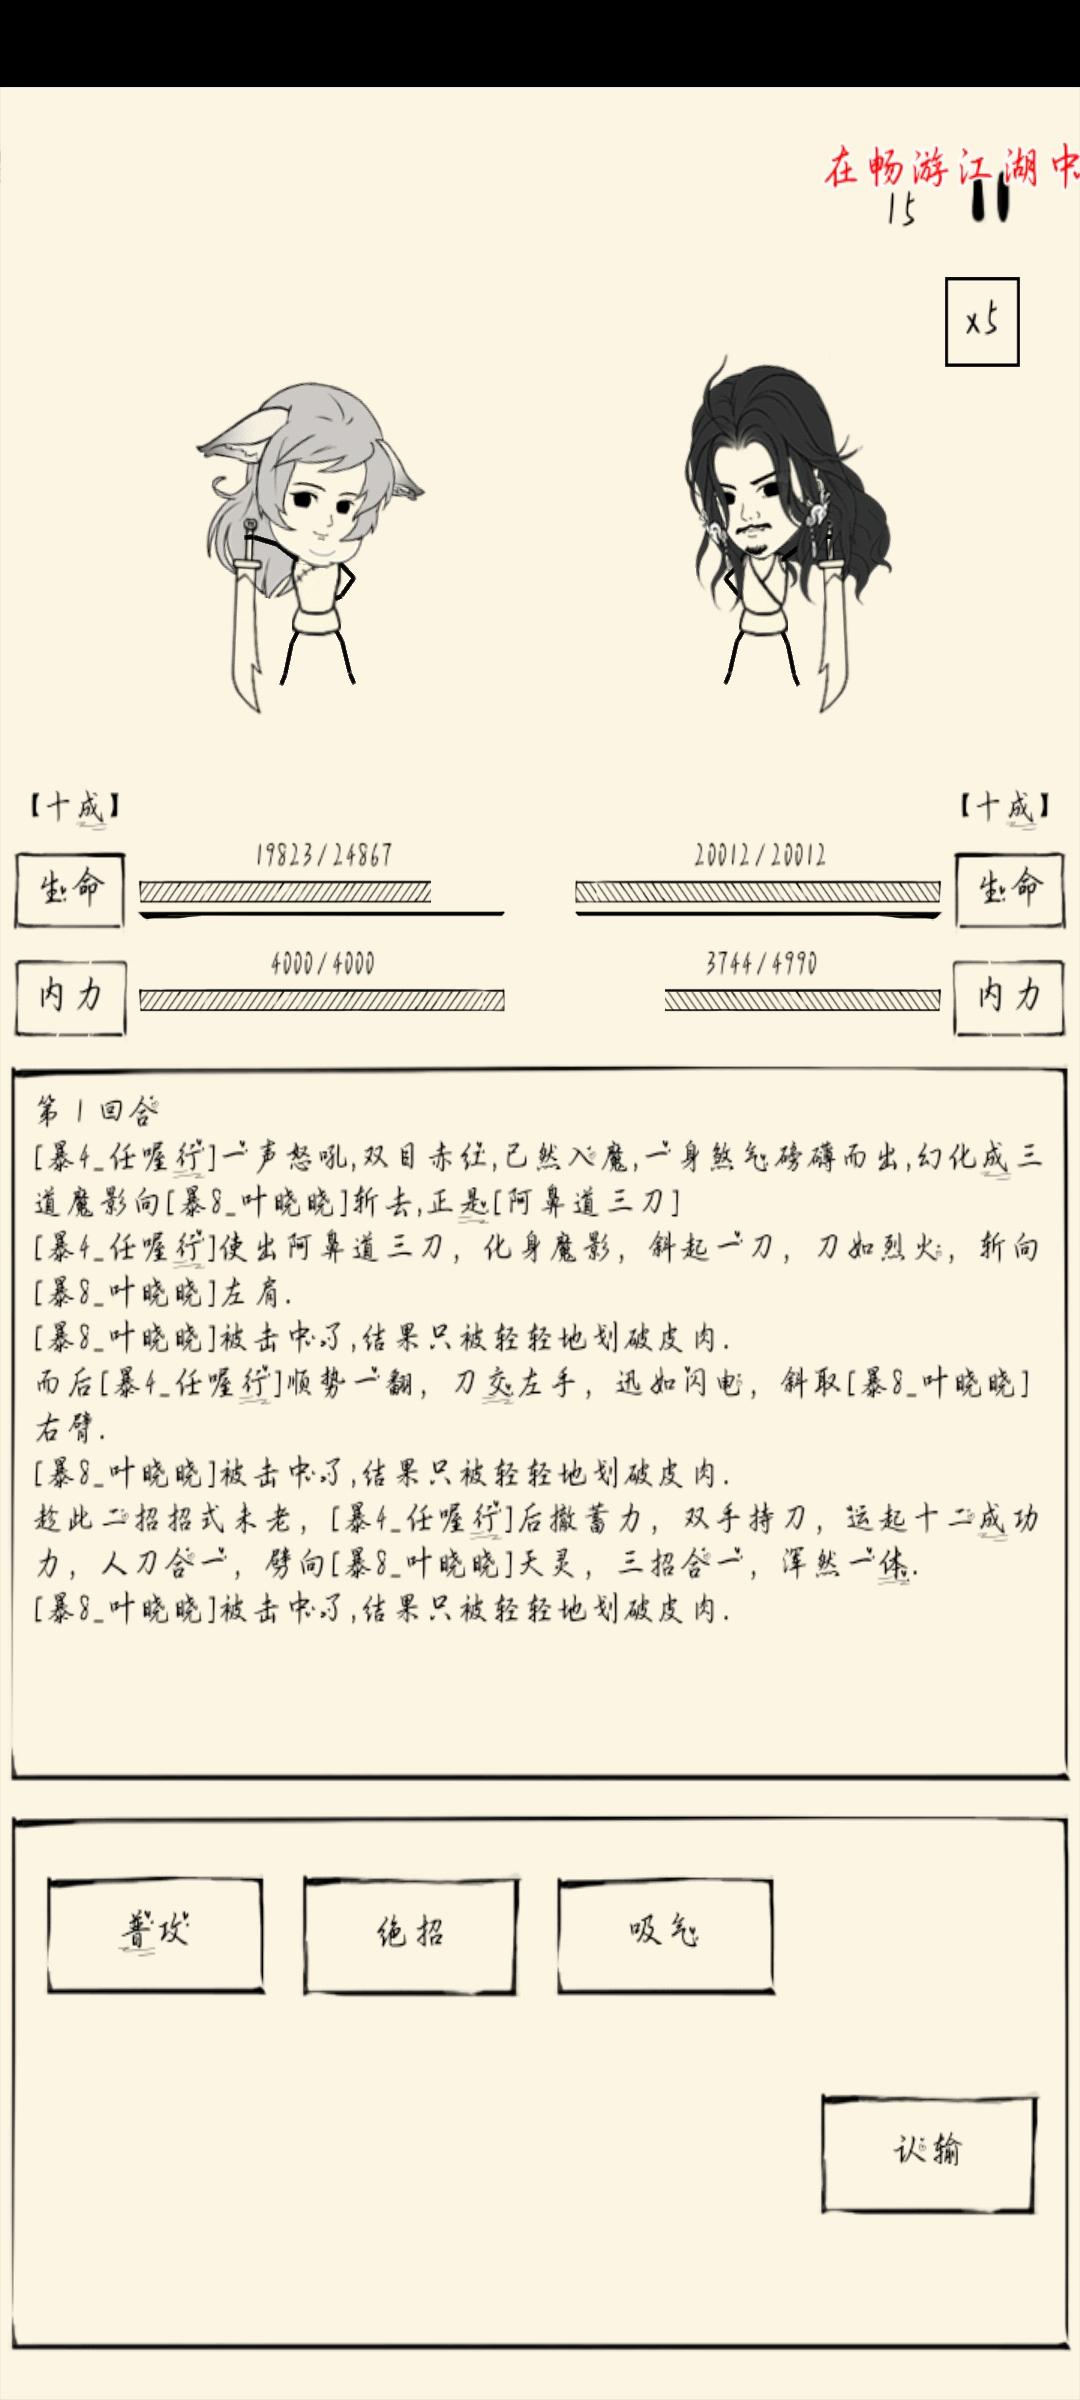 在畅游江湖中
15
x5
【十成】
【十成】
19823/24867
20012/20012
生命
生命
4000/4000
3744/4990
内力
内力
第1回合
[暴4_任喔行]一声怒吼,双目赤红,已然入魔,一身煞气磅礴而出,幻化成三
道魔影向[暴8_叶晓晓]斩去,正是[阿鼻道三刀]
[暴4_任喔行]使出阿鼻道三刀，化身魔影，斜起一刀，刀如烈火，斩向
[暴8_叶晓晓]左肩.
[暴8_叶晓晓]被击中了,结果只被轻轻地划破皮肉.
而后[暴4_任喔行]顺势一翻，刀交左手，迅如闪电，斜取[暴8_叶晓晓]
右臂.
[暴8_叶晓晓]被击中了,结果只被轻轻地划破皮肉.
趁此二招招式未老，[暴4_任喔行]后撤蓄力，双手持刀，运起十二成功
力，人刀合一，劈向[暴8_叶晓晓]天灵，三招合一，浑然一体.
[暴8_叶晓晓]被击中了,结果只被轻轻地划破皮肉.
普攻
绝招
吸气
认输